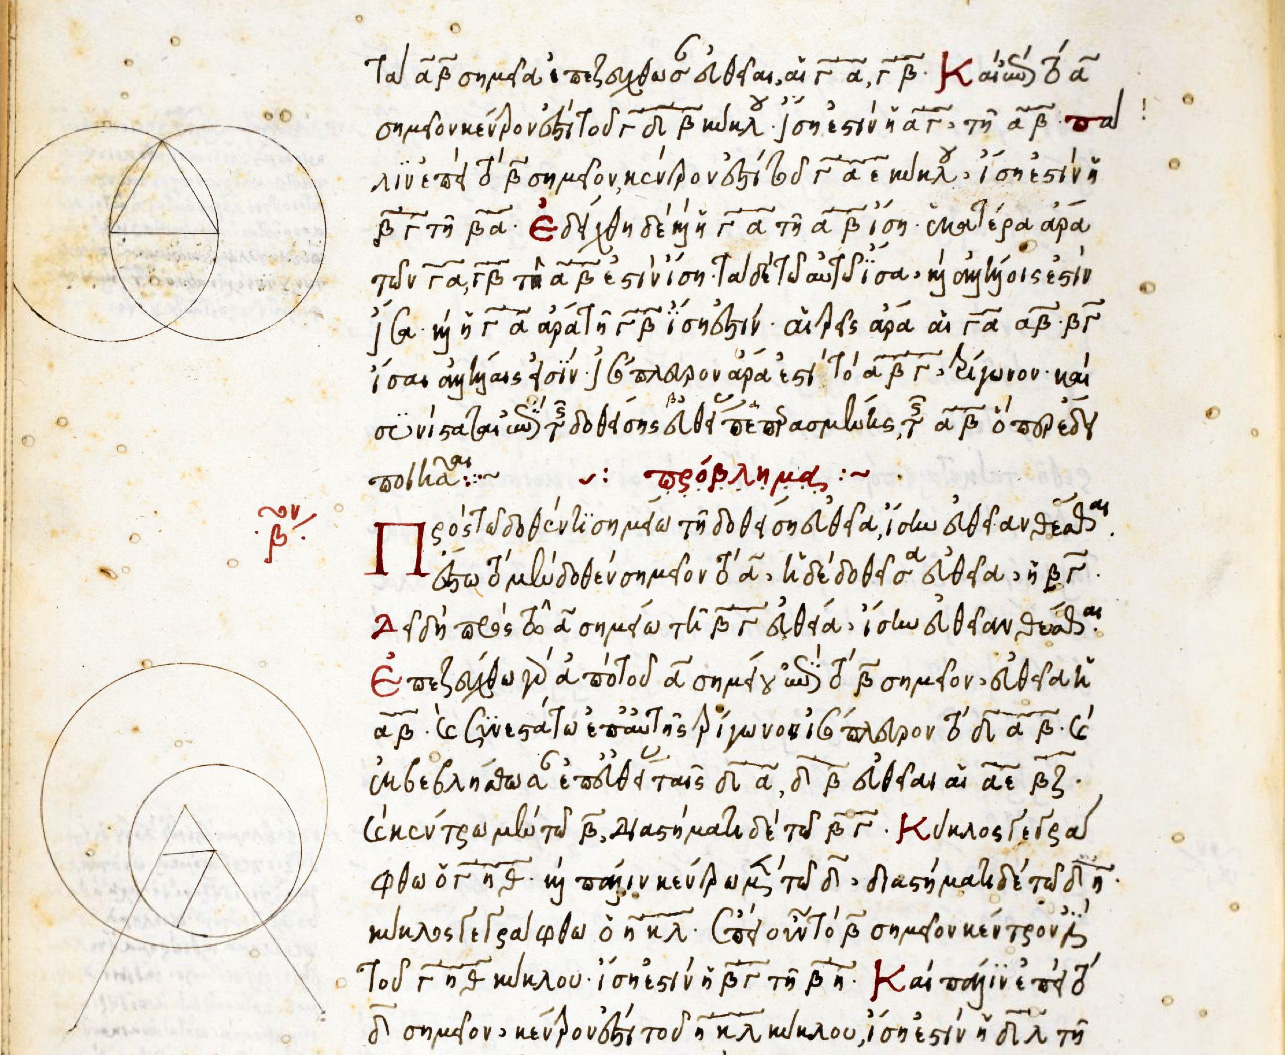 τα α β σημεῖα ἐπεζεύχθωσαν εὐθεῖαι, αἱ γα, γβ. Καὶ ἐπεὶ τὸ α
σημεῖον κέντρον ἐστὶ τοῦ γδβ κύκλου. ἴση ἐστὶν ἡ αγ, τῇ αβ. πά
λιν ἐπεὶ τὸ β σημεῖον, κέντρον ἐστὶ τοῦ γαε κύκλου, ἴση ἐστὶν ἡ
βγ τῇ βα. Ἐδείχθη δὲ καὶ ἡ γα τῇ αβ ἴση. ἑκατέρα ἄρα
τῶν γα, γβ τῇ αβ ἐστὶν ἴση. τὰ δὲ τῷ αὐτῷ ἴσα, καὶ ἀλλήλοις ἐστὶν
ἴσα. καὶ ἡ γα ἄρα τῇ γβ ἴση ἐστίν. αἱ τρεῖς ἄρα αἱ γα αβ. βγ
ἴσαι ἀλλήλαις εἰσίν. ἰσόπλευρον ἄρα ἐστὶ τὸ αβγ, τρίγωνον. καὶ
συνίσταται ἐπὶ τῆς δοθείσης εὐθείας πεπερασμένης, τῆς αβ ὅπερ ἔδει
ποιῆσαι:~
πρόβλημα :~
βον
Πρὸς τῷ δοθέντι σημείῳ τῇ δοθείσῃ εὐθείᾳ, ἴσην εὐθεῖαν θέσθαι.
ἔστω τὸ μὲν δοθὲν σημεῖον τὸ α, ἡ δὲ δοθεῖσα εὐθεῖα, ἡ βγ.
Δεῖ δὴ πρὸς τῷ α σημείῳ τῇ βγ εὐθείᾳ, ἴσην εὐθεῖαν θέσθαι.
Ἐπεζεύχθω γὰρ ἀπὸ τοῦ α σημείου ἐπὶ τὸ β σημεῖον, εὐθεῖα ἡ
αβ. καὶ συνεστάτω ἐπ' αὐτῆς τρίγωνον ἰσόπλευρον τὸ δαβ. καὶ
ἐκβεβλήσθωσαν ἐπ' εὐθείας ταῖς δα, δβ εὐθεῖαι αἱ αε βζ.
καὶ κέντρῳ μὲν τῷ β, διαστήματι δὲ τῷ βγ. Κύκλος γεγρά
φθω ὁ γηθ. καὶ πάλιν κέντρῳ μὲν τῷ δ, διαστήματι δὲ τῷ δη.
κύκλος γεγράφθω ὁ ηκλ. ἐπεὶ οὖν τὸ β σημεῖον κέντρον ἐστὶ
τοῦ γηθ κύκλου. ἴση ἐστὶν ἡ βγ τῇ βη. Καὶ πάλιν ἐπεὶ τὸ
δ σημεῖον, κέντρον ἐστὶ τοῦ ηκλ κύκλου, ἴση ἐστὶν ἡ δλ τῇ